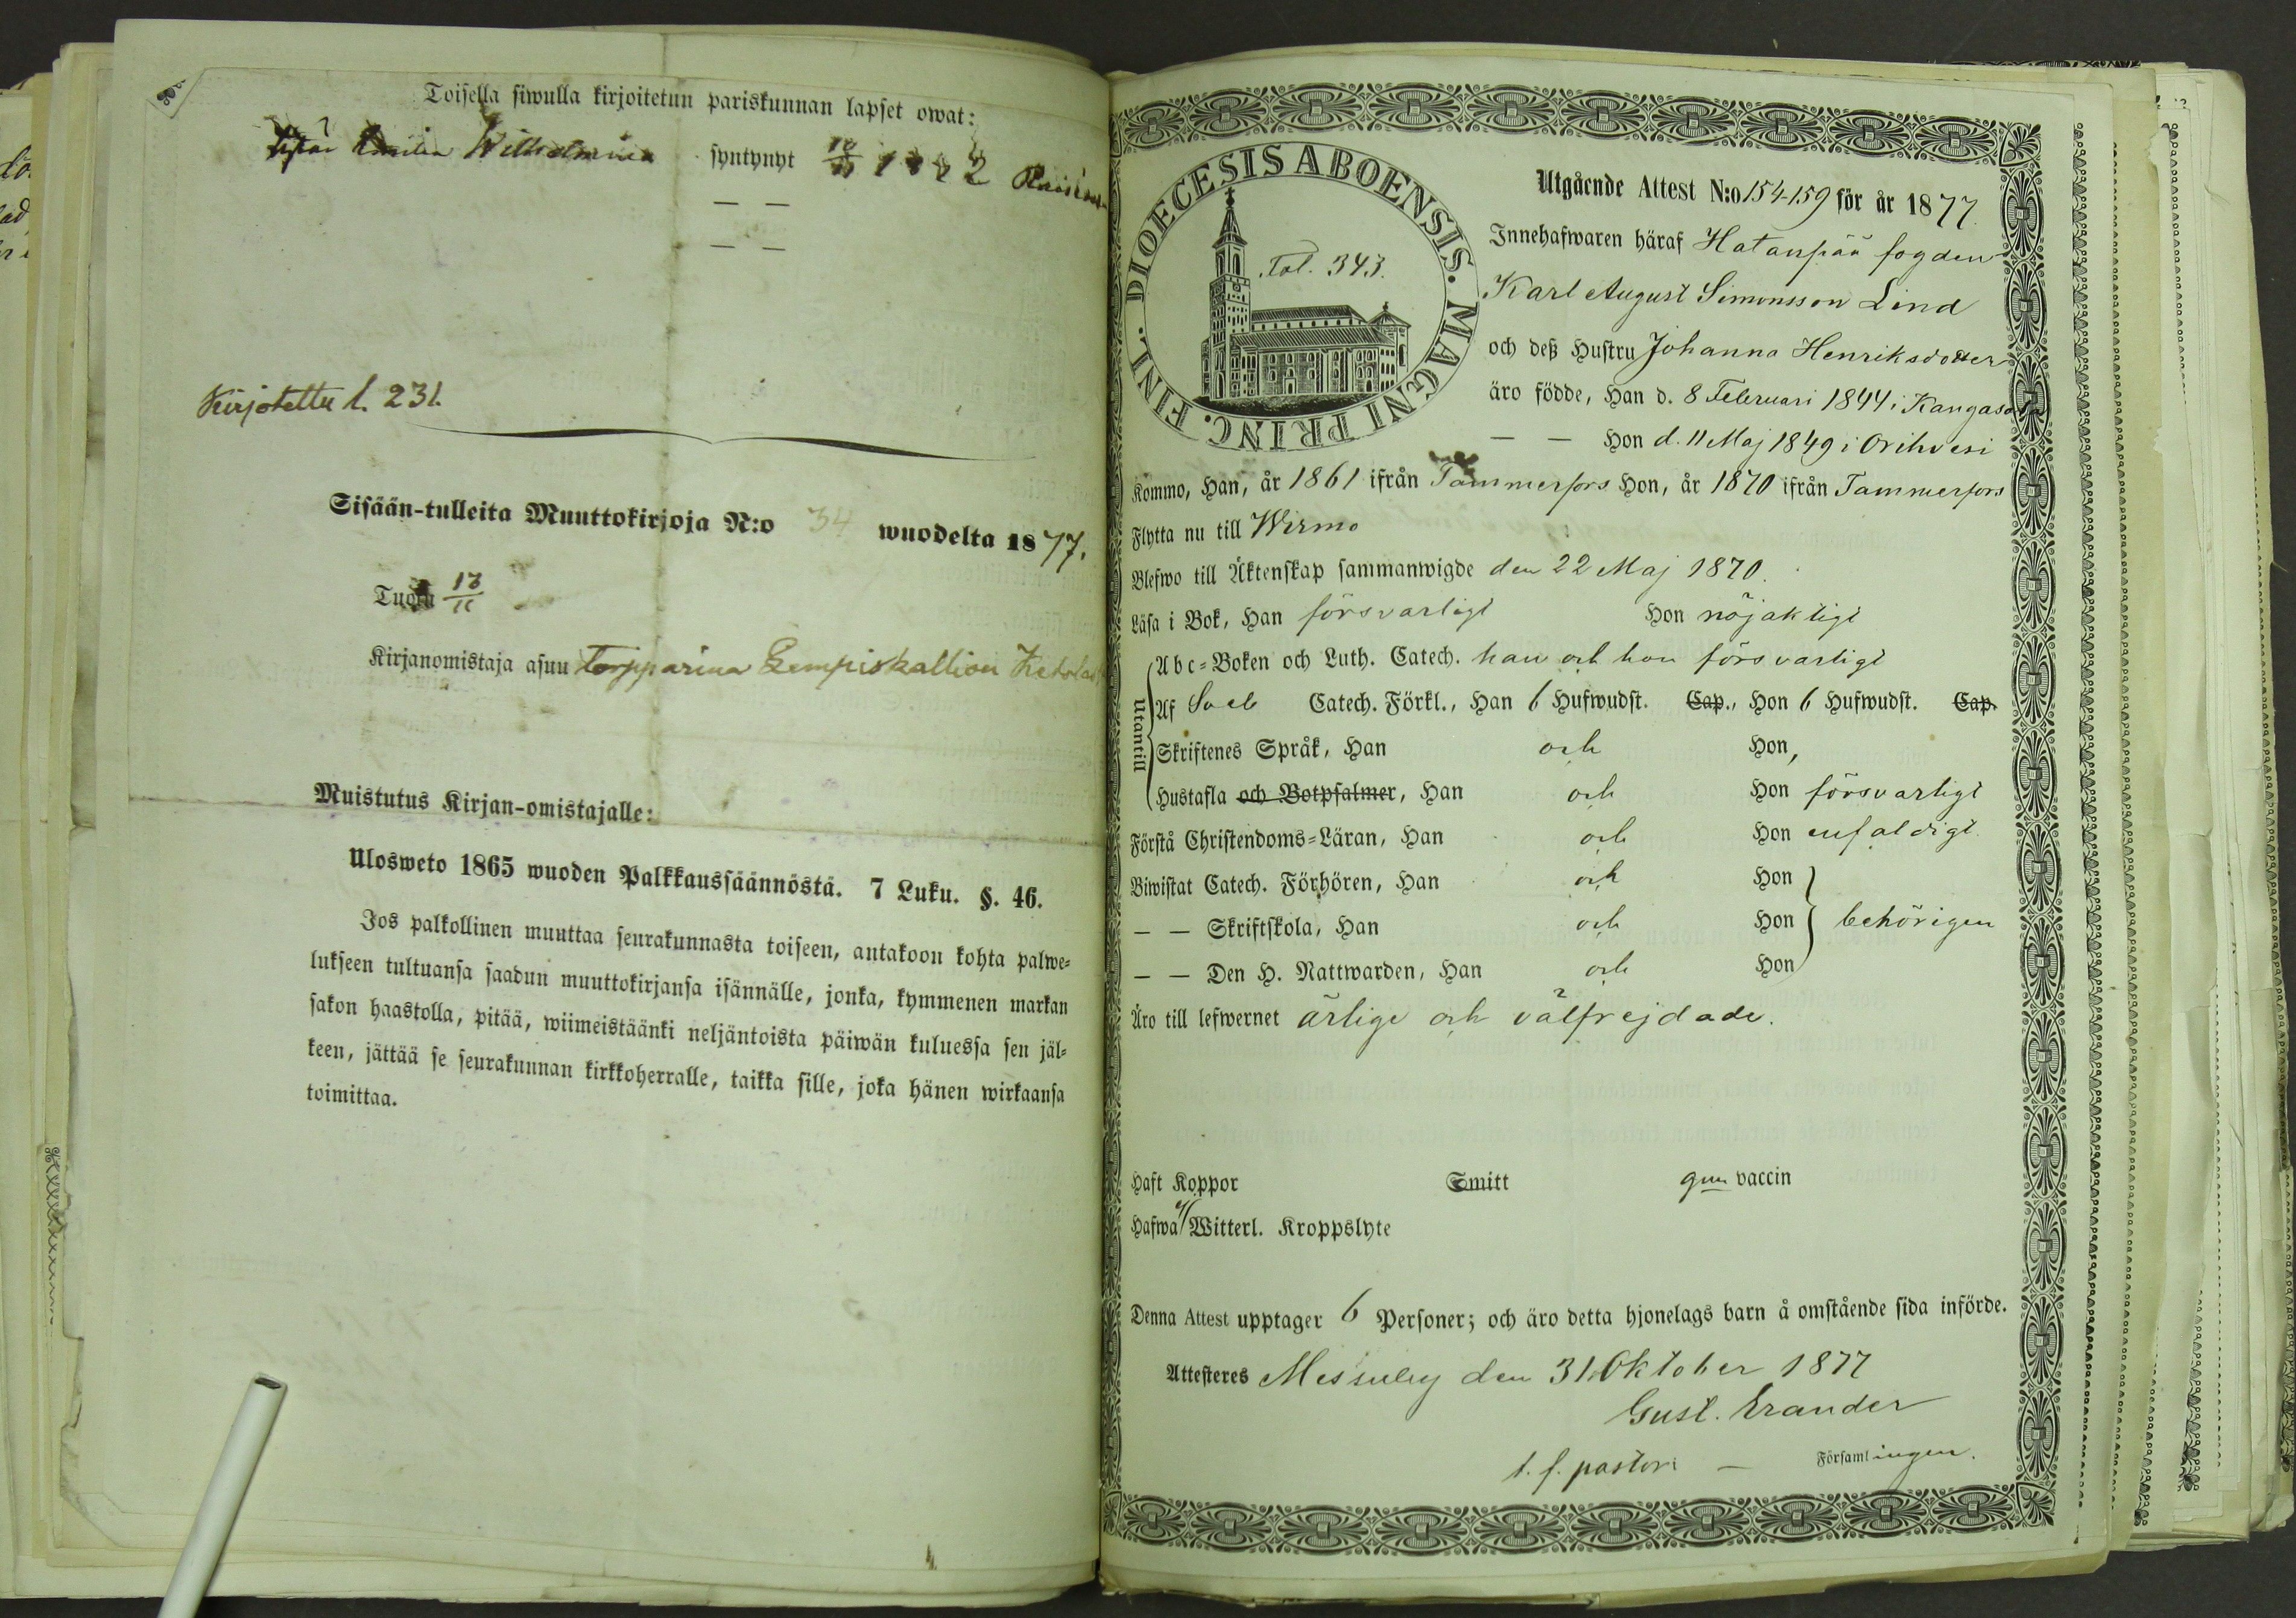 Toisella siwulla kirjoitetun pariskunnan lapset owat:
Emilia Wilhelmina syntynyt
— —
— —
Kirjotettu l. 231.
Sisään-tulleita Muuttokirjoja N:o 34 wuodelta 1877.
Tuotu
Kirjanomistaja asuu torpparina Lempiskallion
Muistutus Kirjan-omistajalle:
Ulosweto 1865 wuoden Palkkaussäännöstä. 7 Luku. §. 46.
Jos palkollinen muuttaa seurakunnasta toiseen, antakoon kohta palwe-
lukseen tultuansa saadun muuttokirjansa isännälle, jonka, kymmenen markan
sakon haastolla, pitää, wiimeistäänki neljäntoista päiwän kuluessa sen jäl-
keen, jättää se seurakunnan kirkkoherralle, taikka sille, joka hänen wirkaansa
toimittaa.
DIOECESIS ABOENSIS. MAGNI PRINC. FINL.
Fol. 343.
Utgående Attest N:o 154-159 för år 1877.
Innehafwaren häraf Hatanpää fogden
Karl August Simonsson Lind
och deß Hustru Johanna Henriksdotter
äro födde, Han d. 8 Februari 1844 i Kangasala
— — Hon d. 11 Maj 1849 i Orihvesi
Kommo, Han, år 1861 ifrån Tammerfors Hon, år 1870 ifrån Tammerfors
Flytta nu till Wirmo
Blefwo till Äktenskap sammanwigde den 22 Maj 1870.
Läsa i Bok, Han försvarligt Hon nöjaktigt
Utantill
Abc-Boken och Luth. Catech. han och hon försvarligt
Af Catech. Förkl., Han 6 Hufwudst. Cap., Hon 6 Hufwudst. Cap.
Skriftenes Språk, Han och Hon,
Hustafla och Botpsalmer, Han och Hon försvarligt
Förstå Christendoms-Läran, Han och Hon enfaldigt.
Biwistat Catech. Förhören, Han och Hon
— — Skriftskola, Han och Hon behörigen
— — Den H. Nattwarden, Han och Hon
Äro till lefwernet ärlige och välfrejdade.
Haft Koppor Smitt gm vaccin
Hafwa ej Witterl. Kroppslyte
Denna Attest upptager 6 Personer; och äro detta hjonelags barn å omstående sida införde.
Attesteres Messuby den 31 Oktober 1877
Gust. Erander
t. f. pastor i — Församlingen.